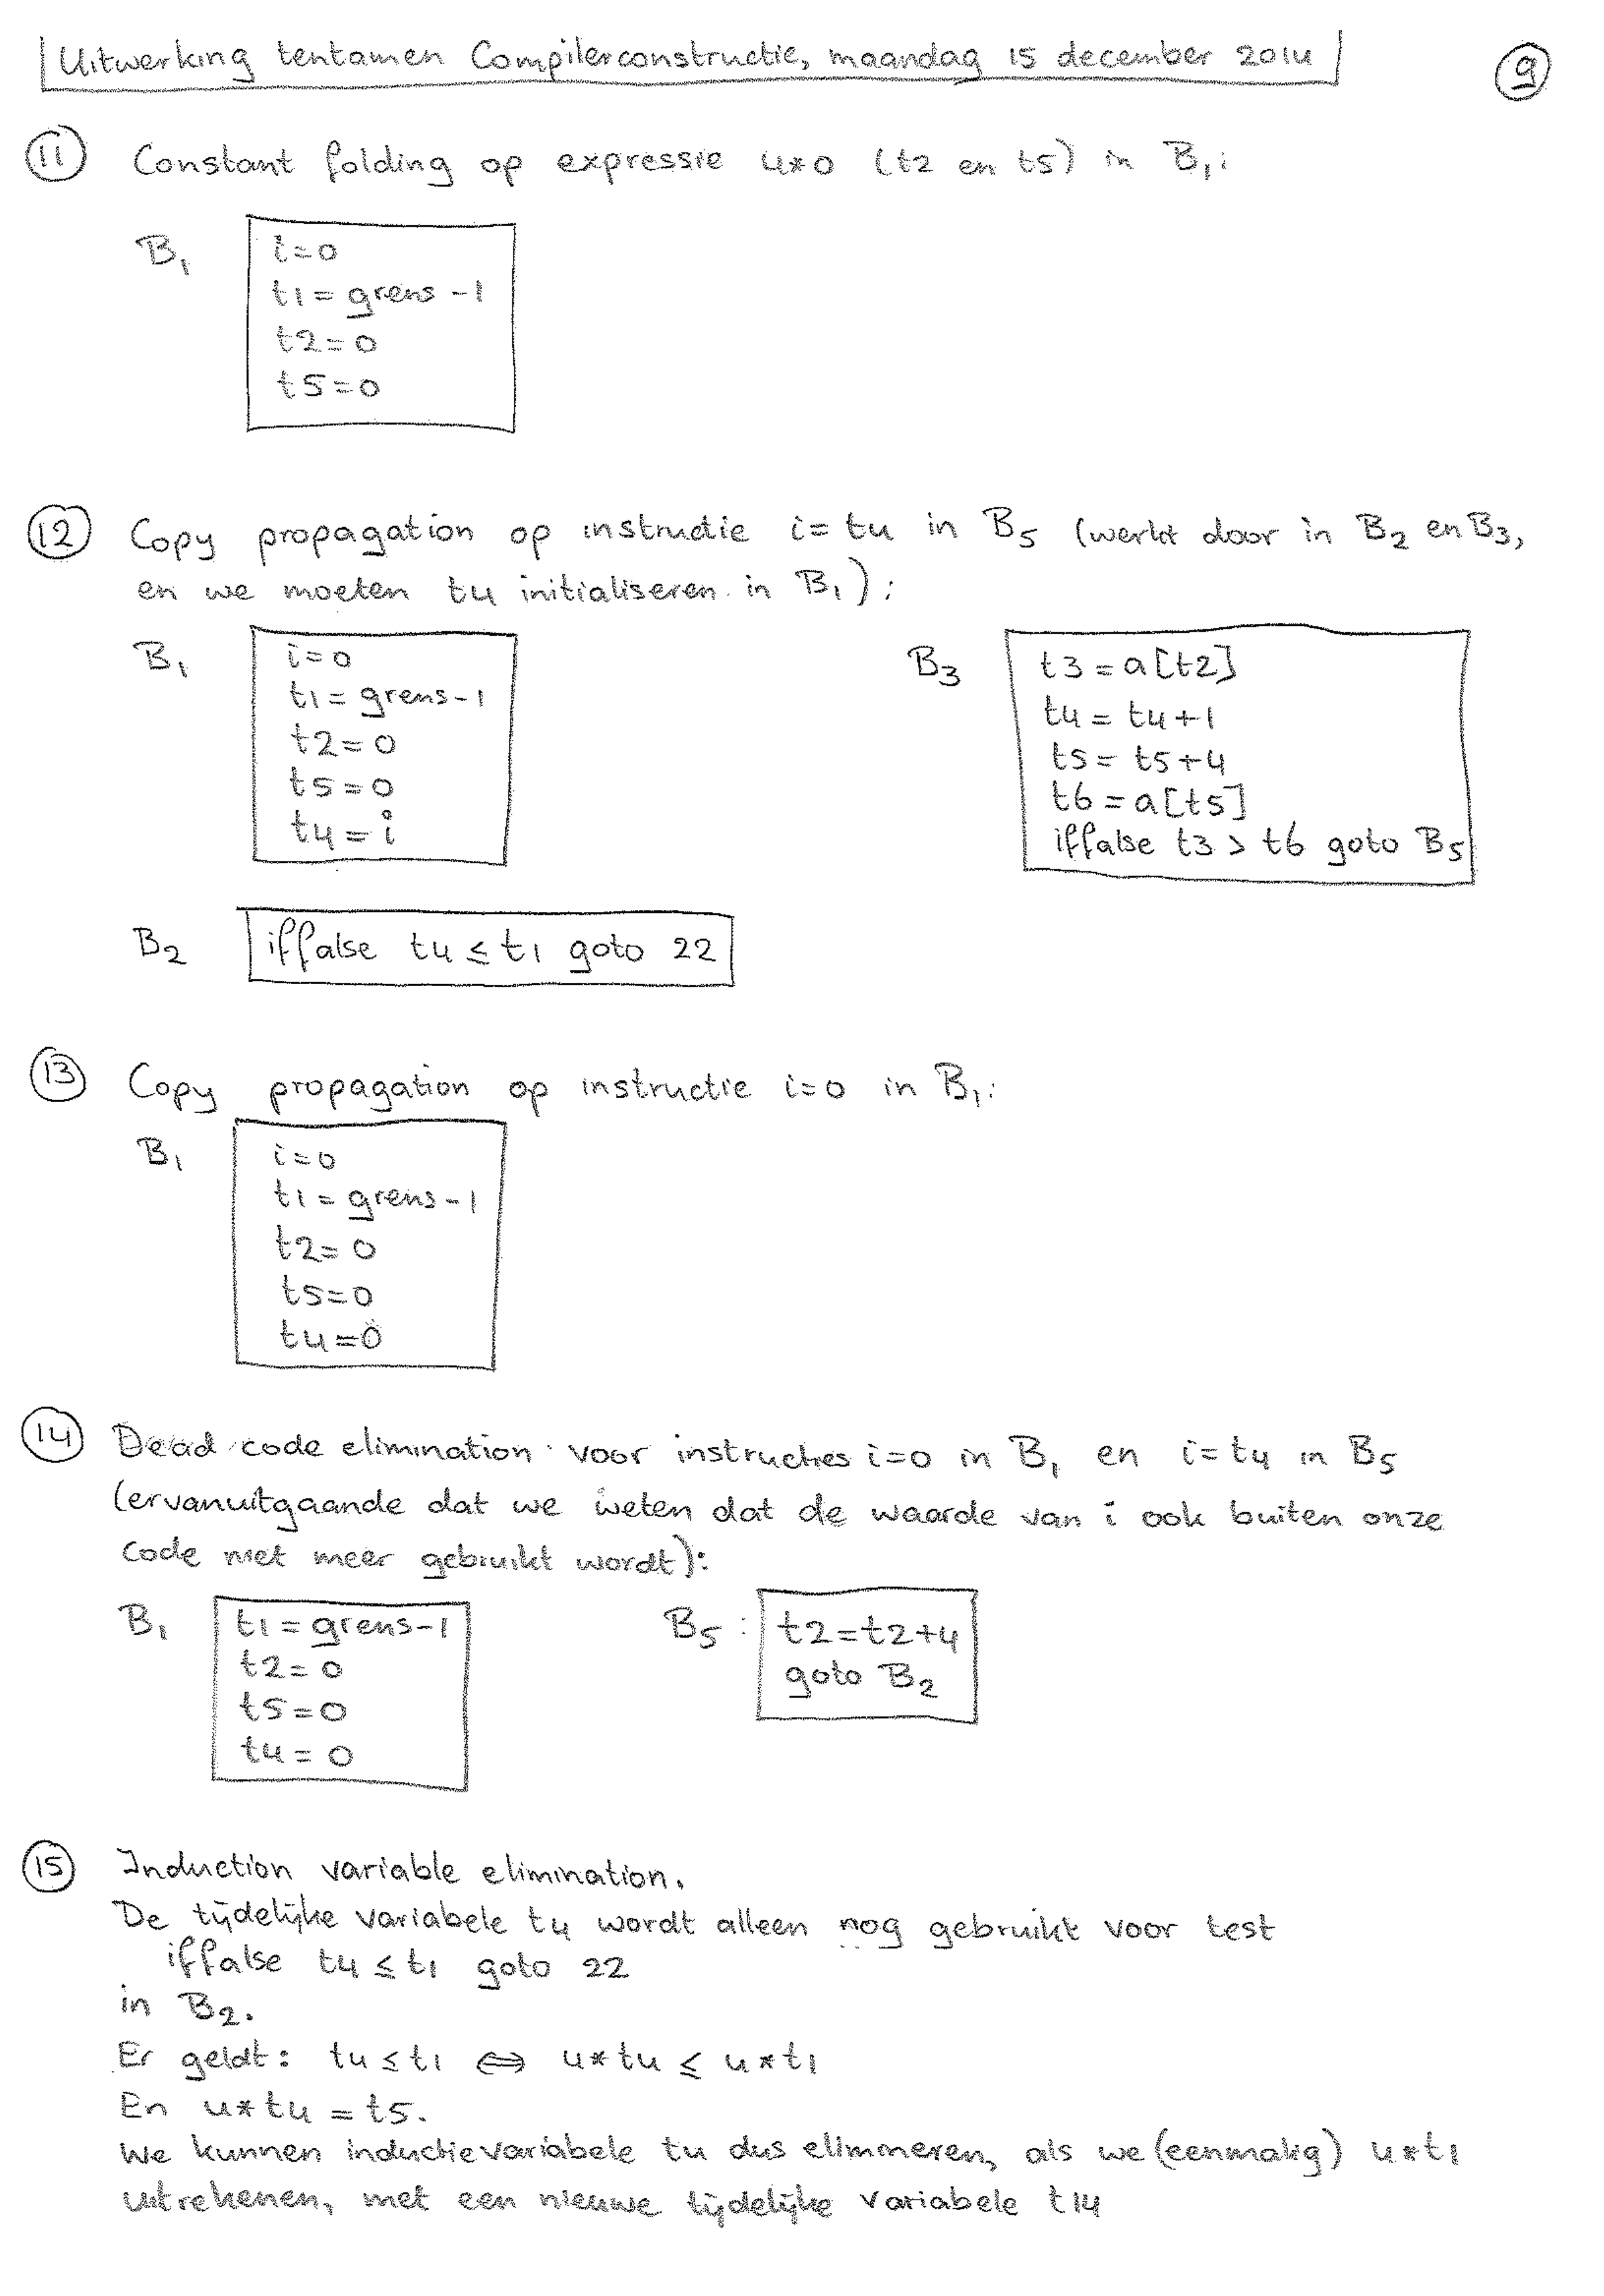 Uitwerking tentamen Compilerconstructie, maandag 15 december 2014
9
11 Constant folding op expressie 4*0 (t2 en t5) in B1:
B1
i=0
t1 = grens -1
t2=0
t5=0
12 Copy propagation op instructie i=t4 in B5 (werkt door in B2 en B3,
en we moeten t4 initialiseren in B1):
B1
i=0
t1 = grens-1
t2=0
t5=0
t4=i
B3
t3=a[t2]
t4=t4+1
t5=t5+4
t6=a[t5]
iffalse t3 > t6 goto B5
B2
iffalse t4 ≤ t1 goto 22
13 Copy propagation op instructie i=0 in B1:
B1
i=0
t1 = grens-1
t2=0
t5=0
t4=0
14 Dead code elimination voor instructies i=0 in B1 en i=t4 in B5
(ervanuitgaande dat we weten dat de waarde van i ook buiten onze
code niet meer gebruikt wordt):
B1
t1 = grens-1
t2=0
t5=0
t4=0
B5:
t2=t2+4
goto B2
15 Induction variable elimination.
De tijdelijke variabele t4 wordt alleen nog gebruikt voor test
iffalse t4 ≤ t1 goto 22
in B2.
Er geldt: t4 ≤ t1 ⇔ 4*t4 ≤ 4*t1
En 4*t4 = t5.
We kunnen inductievariabele t4 dus elimineren, als we (eenmalig) 4*t1
uitrekenen, met een nieuwe tijdelijke variabele t14